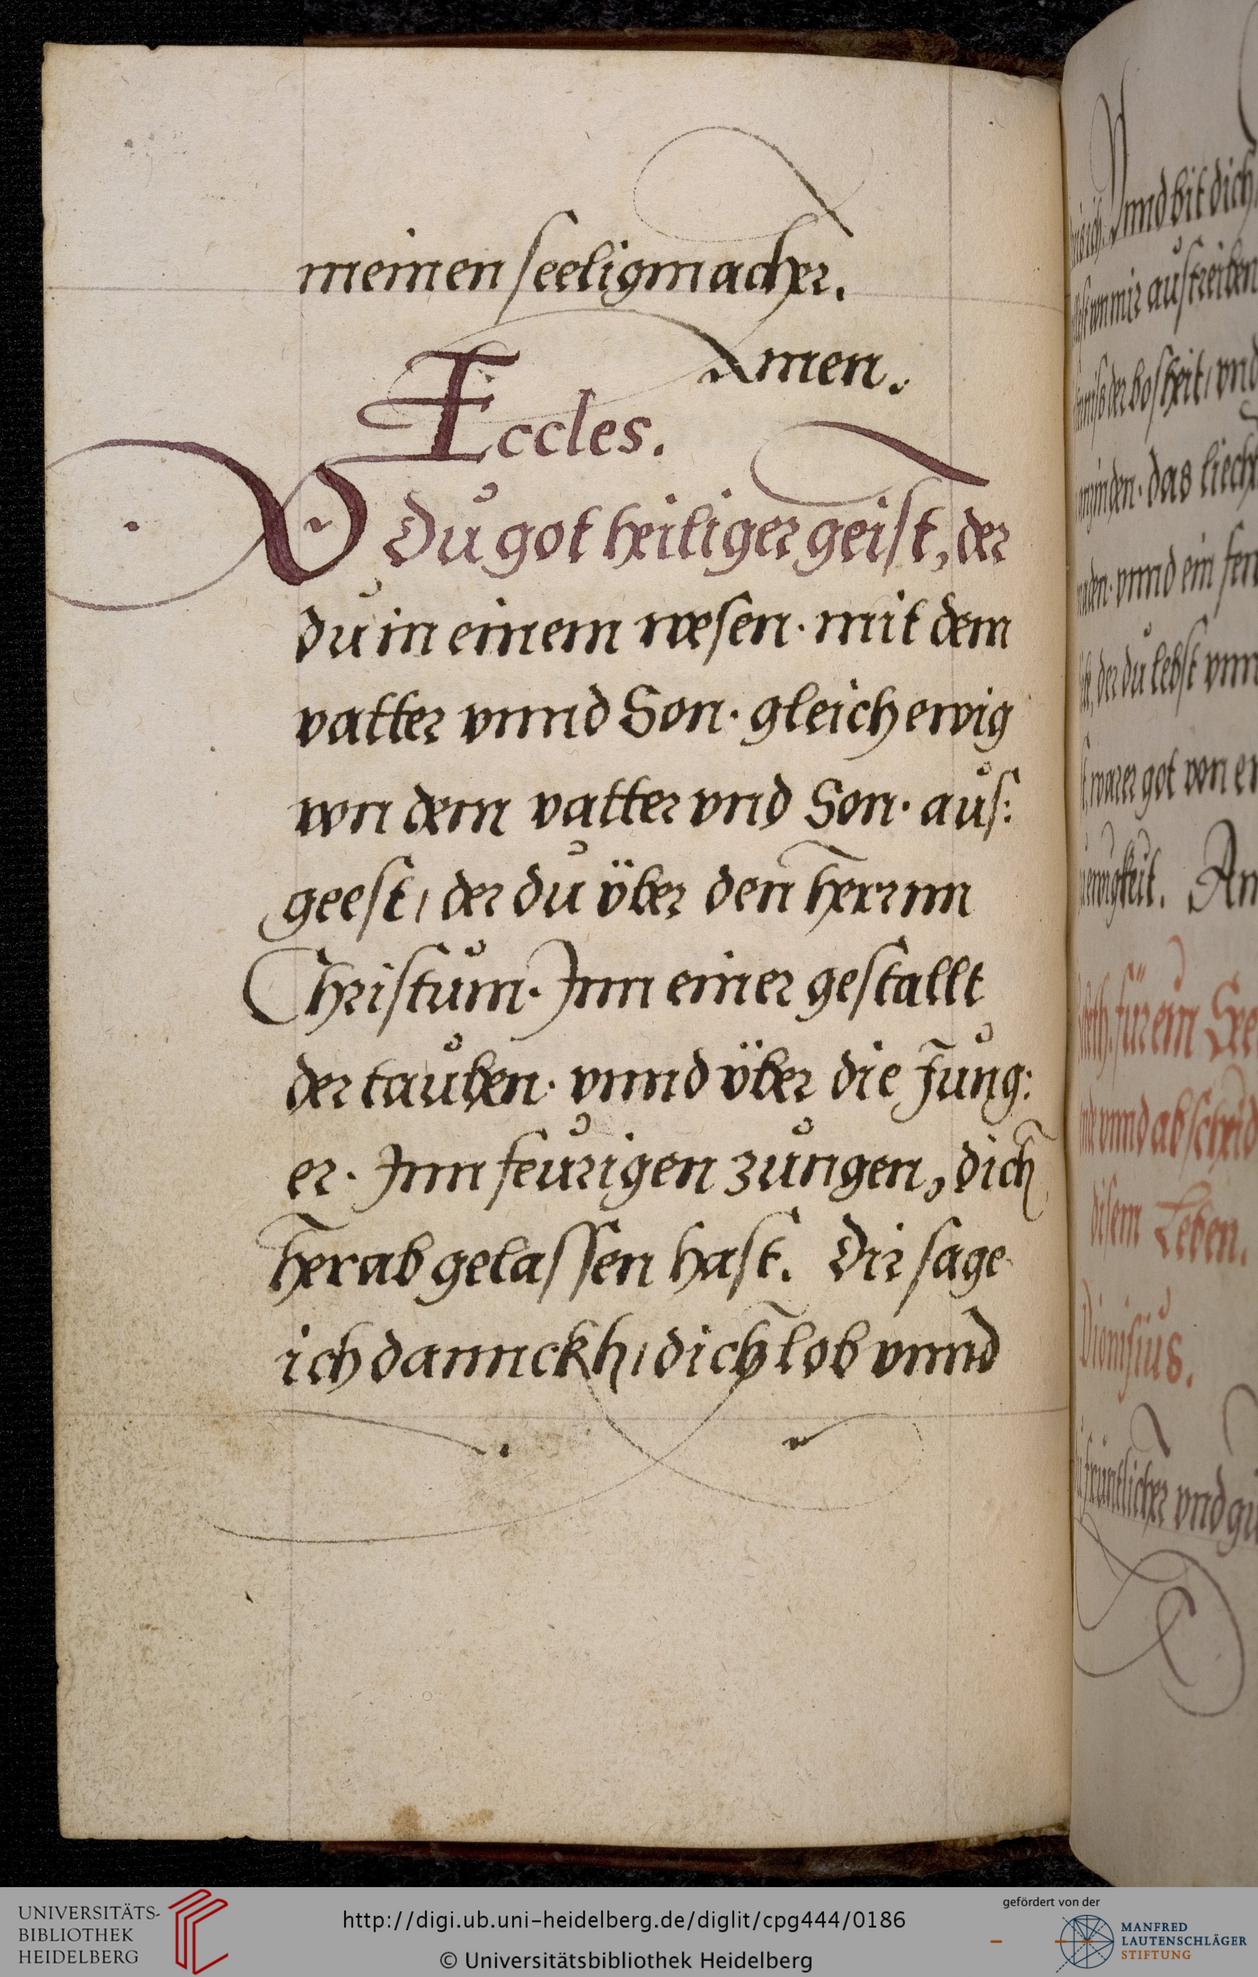 meinen seeligmacher.
Amen.
Eccles.
O du got heiliger geist, der
du in einem wesen · mit dem
vatter vnnd Son · gleich ewig
von dem vatter vnd Son · aus:
geest / der du über den herrnn
Christum · Jnn einer gestallt
der tauben · vnnd über die Jung:
er · Jnn feurigen zungen, dich
herab gelassen hast. Dir sage
ich dannckh / dich lob vnnd
Vnnd bit dich
von mir austreiben
der bosheit / vnd
das liecht
vnnd ein
der du lebst vnn
warer got von
An
für ein See
vnnd abscheid
disem Leben.
Dionisius.
fruntlicher vnd
UNIVERSITÄTS-
BIBLIOTHEK
HEIDELBERG
http://digi.ub.uni-heidelberg.de/diglit/cpg444/0186
© Universitätsbibliothek Heidelberg
gefördert von der
MANFRED
LAUTENSCHLÄGER
STIFTUNG